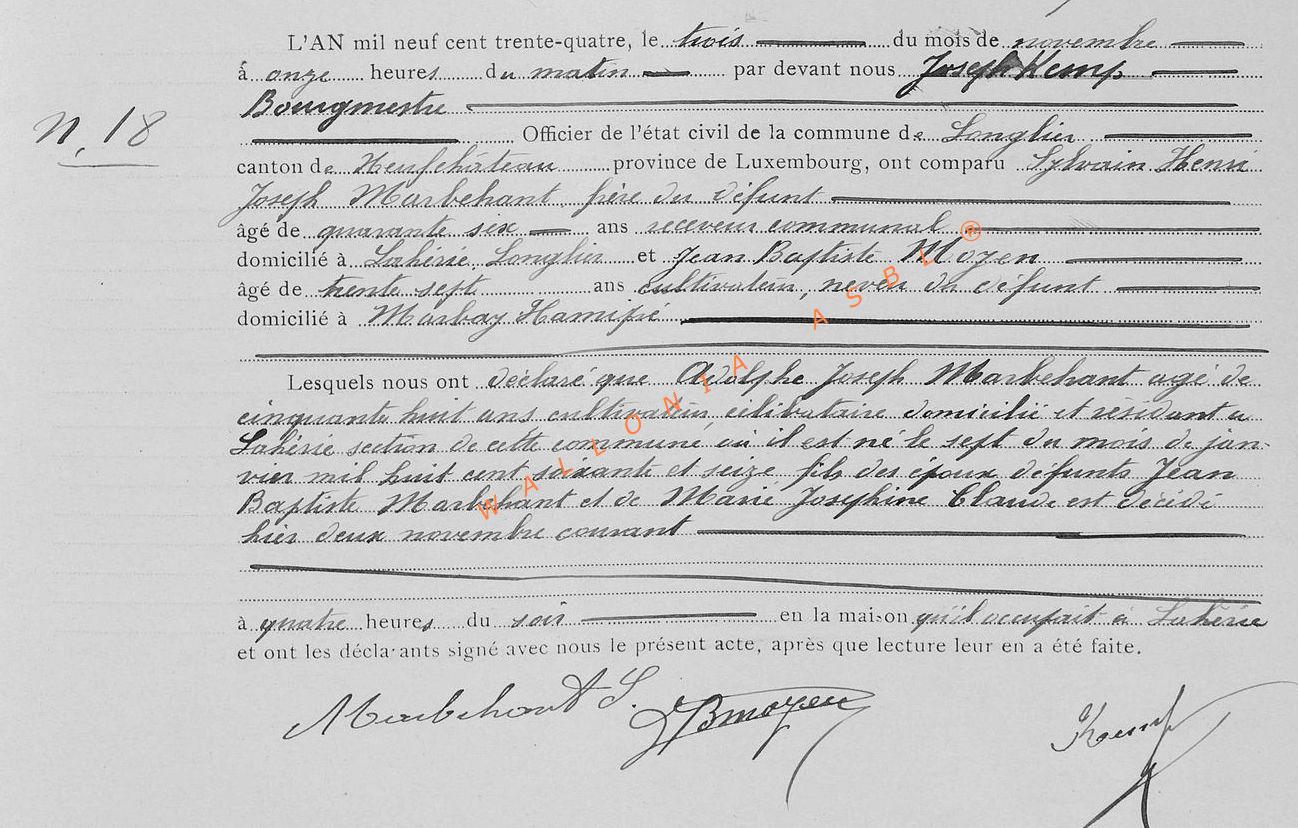 L'AN mil neuf cent trente-quatre, le trois du mois de novembre
à onze heures du matin par devant nous Joseph Kemp
Bourgmestre
N. 18
Officier de l'état civil de la commune de Longlier
canton de Neufchâteau province de Luxembourg, ont comparu Sylvain Henri
Joseph Marbehant, frère du défunt
âgé de quarante six ans receveur communal
domicilié à Lahérie, Longlier et Jean Baptiste Moyen
âgé de trente sept ans cultivateur, neveu du défunt
domicilié à Marbay Hamipré
Lesquels nous ont déclaré que Adolphe Joseph Marbehant agé de
cinquante huit ans cultivateur célibataire domicilié et résidant à
Lahérie section de cette commune, où il est né le sept du mois de jan-
vier mil huit cent soixante et seize, fils des époux défunts Jean
Baptiste Marbehant et de Marie Josephine Claude est décédé
hier deux novembre courant
à quatre heures du soir en la maison qu'il occupait à Lahérie
et ont les déclarants signé avec nous le présent acte, après que lecture leur en a été faite.
Marbehant S. JBmoyen Kemp
WALLONIA ASBL ®